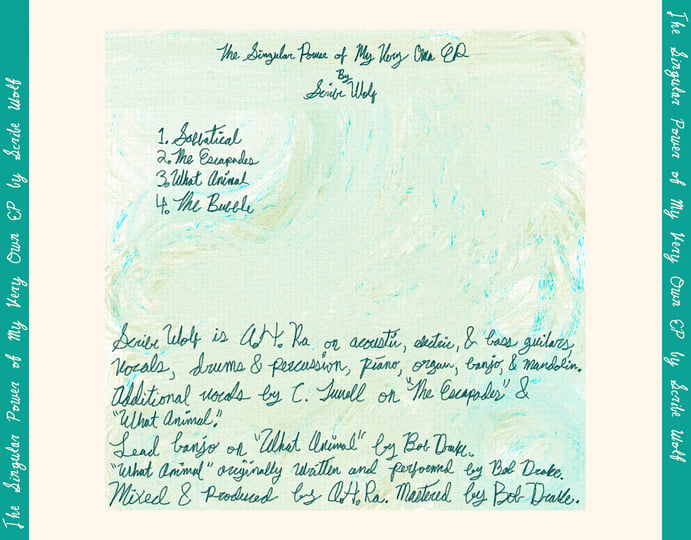 The Singular Power of My Very Own EP by Scribe Wolf
The Singular Power of My Very Own EP
By
Scribe Wolf
1. Sabbatical
2. The Escapades
3. What Animal
4. The Bubble
Scribe Wolf is A.H. Ra on acoustic, electric, & bass guitars,
vocals, drums & percussion, piano, organ, banjo, & mandolin.
Additional vocals by C. on "The Escapades" &
"What Animal."
Lead banjo on "What Animal" by Bob Drake.
"What Animal" originally written and performed by Bob Drake.
Mixed & Produced by A.H. Ra. Mastered by Bob Drake.
The Singular Power of My Very Own EP by Scribe Wolf